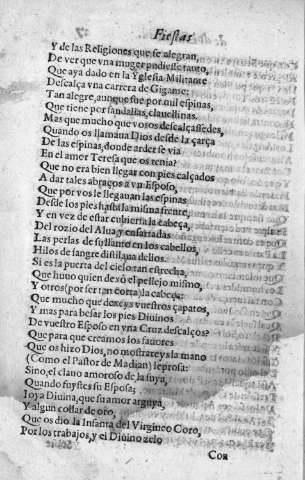 Fiestas
Y de las Religiones que se alegran,
De ver que vna muger pudiesse tanto,
Que aya dado en la Yglesia Militante
Descalça vna carrera de Gigante:
Tan alegre, aunque fue por mil espinas,
Que tiene por sandalias, clauellinas.
Mas que mucho que vosos descalçassedes,
Quando os llamaua Dios desde la çarça
De las espinas, donde arder se via
En el amor Teresa que os tenia?
Que no era bien llegar con pies calçados
A dar tales abraços a vn Esposo,
Que por vos le llegauan las espinas
Desde los pies hasta la misma frente,
Y en vez de estar cubierta la cabeça,
Del rozio del Alua, y ensartadas
Las perlas de su llanto en los cabellos,
Hilos de sangre distilaua dellos.
Si es la puerta del cielo tan estrecha,
Que huuo quien dexò el pellejo mismo,
Y otros (por ser tan corta) la cabeça:
Que mucho que dexeys vuestros çapatos,
Y mas para besar los pies Diuinos
De vuestro Esposo en vna Cruz descalços?
Que para que creamos los fauores
Que os hizo Dios, no mostrareys la mano
(Como el Pastor de Madian) leprosa:
Sino, el clauo amoroso de la suya,
Quando fuystes su Esposa;
Ioya Diuina, que su amor arguya,
Y algun collar de oro,
Que os dio la Infanta del Virgineo Coro,
Por los trabajos, y el Diuino zelo
Con